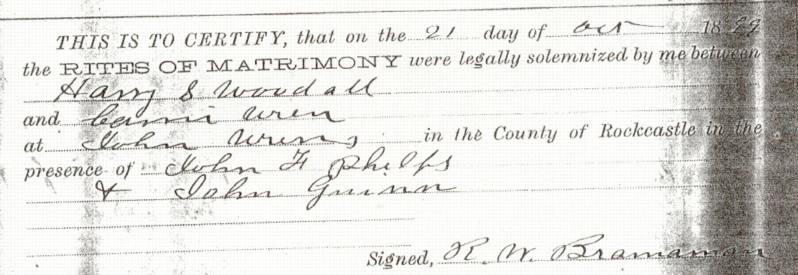 THIS IS TO CERTIFY, that on the 21 day of Oct 1899
the RITES OF MATRIMONY were legally solemnized by me between
Harry S Woodall
and Cannie Wren
at John Wrens in the County of Rockcastle in the
presence of John F Phelps
& John Guinn
Signed, R. W. Bramaman